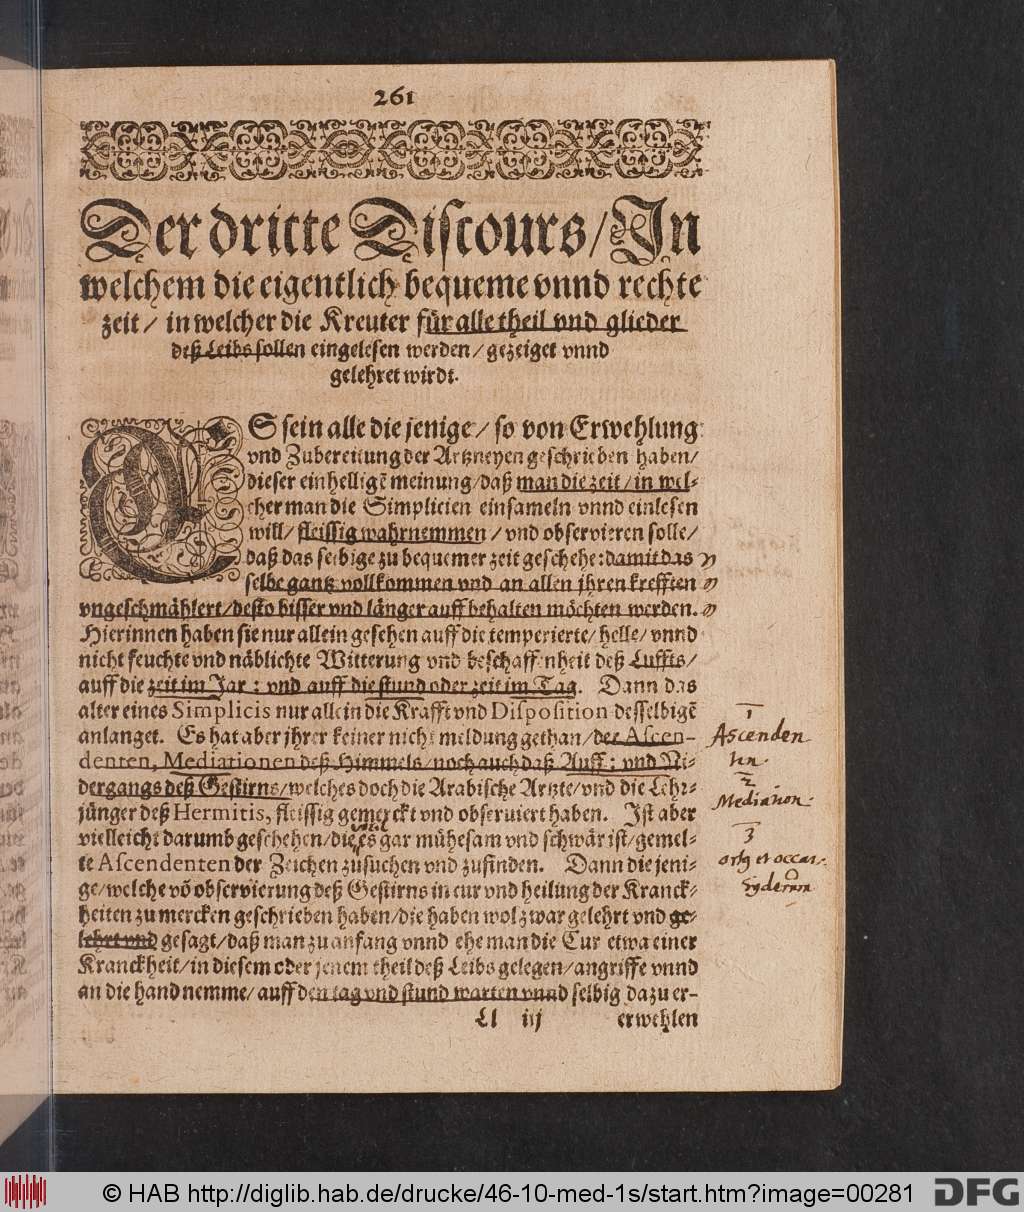 261
Der dritte Discours/ Jn
welchem die eigentlich bequeme vnnd rechte
zeit/ in welcher die Kreuter für alle theil vnd glieder
deß Leibs sollen eingelesen werden/ gezeiget vnnd
gelehret wirdt.
ES sein alle die jenige/ so von Erwehlung
vnd Zubereitung der Artzneyen geschrieben haben/
dieser einhelligẽ meinung/ daß man die zeit/ in wel-
cher man die Simplicien einsameln vnnd einlesen
will/ fleissig wahrnemmen / vnd observieren solle/
daß das selbige zu bequemer zeit geschehe: damit das
selbe gantz vollkommen vnd an allen jhren krefften
vngeschmählert/ desto bisser vnd länger auff behalten möchten werden.
Hierinnen haben sie nur allein gesehen auff die temperierte/ helle/ vnnd
nicht feuchte vnd näblichte Witterung vnd beschaffenheit deß Luffts/
auff die zeit im Jar : vnd auff die stund oder zeit im Tag. Dann das
alter eines Simplicis nur allein die Krafft vnd Disposition desselbigẽ
anlanget. Es hat aber jhrer keiner nicht meldung gethan/ der Ascen-
denten, Mediationen deß Himmels/ noch auch daß Auff: vnd Ni-
dergangs deß Gestirns/ welches doch die Arabische Artzte/ vnd die Lehr-
jünger deß Hermitis, fleissig gemerckt vnd obseruiert haben. Jst aber
vielleicht darumb geschehen/ die es gar mühesam vnd schwär ist/ gemel-
te Ascendenten der Zeichen zusuchen vnd zufinden. Dann die jeni-
ge/ welche võ observierung deß Gestirns in cur vnd heilung der Kranck-
heiten zu mercken geschrieben haben/ die haben wol zwar gelehrt vnd ge-
lehrt vnd gesagt/ daß man zu anfang vnnd ehe man die Cur etwa einer
Kranckheit/ in diesem oder jenem theil deß Leibs gelegen/ angriffe vnnd
an die hand nemme/ auff den tag vnd stund warten vnnd selbig dazu er-
Ll iij erwehlen
1
Ascenden
ten.
2
Mediation.
3
© HAB http://diglib.hab.de/drucke/46-10-med-1s/start.htm?image=00281
DFG